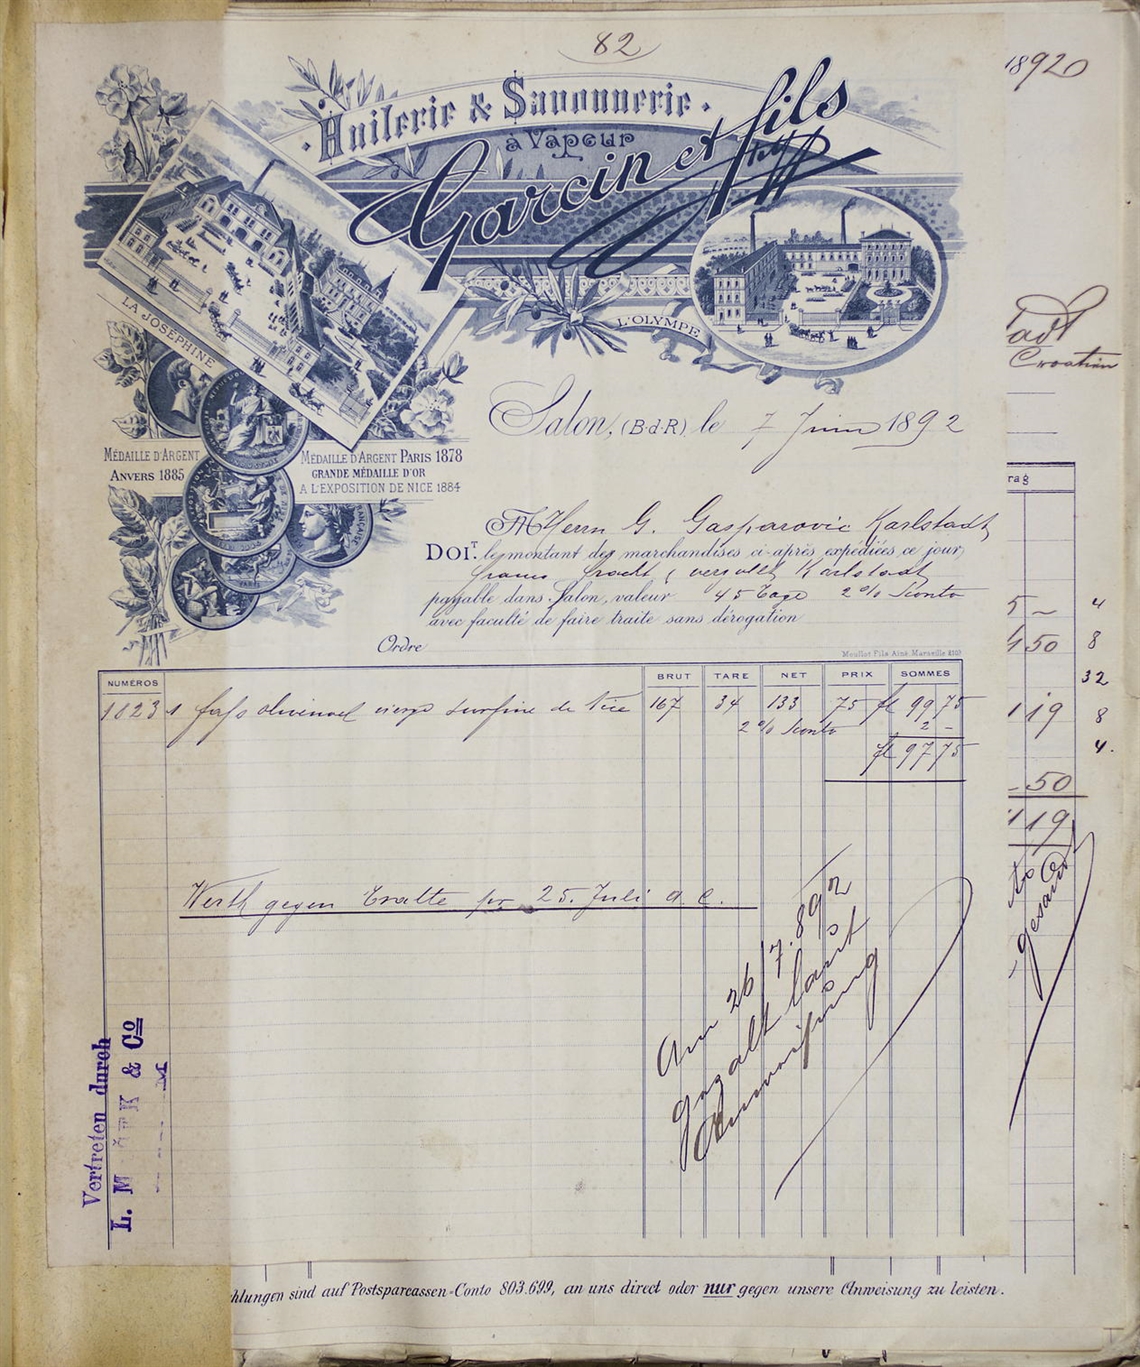 82
Huilerie & Savonnerie
à Vapeur
Garcin et fils
LA JOSÉPHINE
L'OLYMPE
MÉDAILLE D'ARGENT
ANVERS 1885
MÉDAILLE D'ARGENT PARIS 1878
GRANDE MÉDAILLE D'OR
A L'EXPOSITION DE NICE 1884
Salon, (B-d-R) le 7 Juin 1892
Herrn G. Gasparovic Karlstadt
DOIT. le montant des marchandises ci-après expédiées ce jour,
franco Fracht & verzollt Karlstadt
payable dans Salon, valeur 45 Tage 2% Sconto
avec faculté de faire traite sans dérogation
Ordre
Moullot Fils Ainé. Marseille
NUMÉROS BRUT TARE NET PRIX SOMMES
1823 1 fass olivenoel vierge surfine de Nice 167 34 133 75 fl 99 75
2% Sconto 2 -
fl 97 75
Werth gegen Tratte pr 25. Juli a. c.
Am 26/7. 892
gezalt laut
Anweisung
Vertreten durch
L. M K & Co
M
hlungen sind auf Postsparcassen-Conto 803.699, an uns direct oder nur gegen unsere Anweisung zu leisten.
1892
adt
Croatien
rag
5 ~ 4
50 8
32
19 8
4.
50
19
gesandt